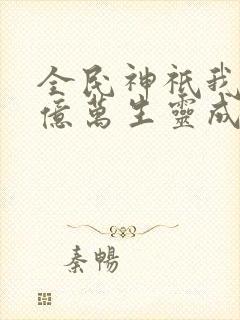 全民神祇我
億萬生靈成
秦暢